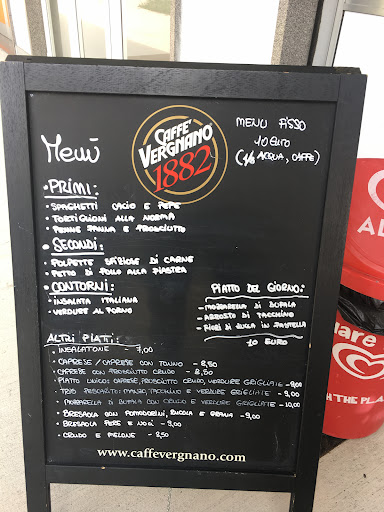 CAFFÈ
VERGNANO
1882
Menù
MENU FISSO
10 EURO
(½ ACQUA, CAFFE)
• PRIMI:
• SPAGHETTI CACIO E PEPE
• TORTIGLIONI ALLA NORMA
• PENNE PANNA E PROSCIUTTO
• SECONDI:
• POLPETTE SFIZIOSE DI CARNE
• PETTO DI POLLO ALLA PIASTRA
• CONTORNI:
• INSALATA ITALIANA
• VERDURE AL FORNO
PIATTO DEL GIORNO:
- MOZZARELLA DI BUFALA
- ARROSTO DI TACCHINO
- FIORI DI ZUCCA IN PASTELLA
10 EURO
ALTRI PIATTI:
• INSALATONE 7,00
• CAPRESE/CAPRESE CON TONNO - 8,50
• CAPRESE CON PROSCIUTTO CRUDO - 8,50
• PIATTO UNICO: CAPRESE, PROSCIUTTO CRUDO, VERDURE GRIGLIATE - 9,00
• TRIS PESCATO: MANZO, TACCHINO E VERDURE GRIGLIATE - 9,00
• MOZZARELLA DI BUFALA CON CRUDO E VERDURE GRIGLIATE - 10,00
• BRESAOLA CON POMODORINI, RUCOLA E GRANA - 9,00
• BRESAOLA PERE E NOCI - 9,00
• CRUDO E MELONE - 8,50
www.caffevergnano.com